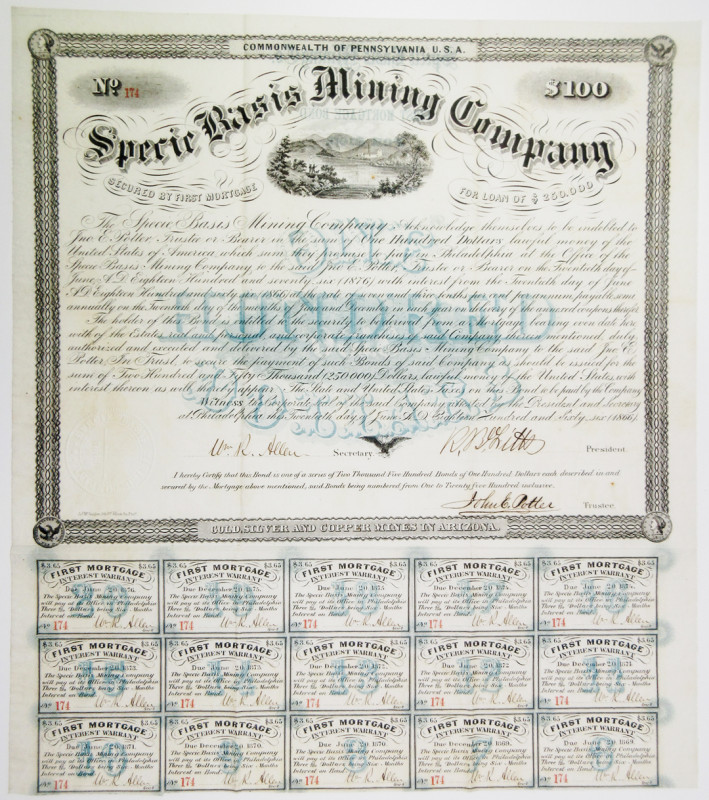 COMMONWEALTH OF PENNSYLVANIA U.S.A.
No 174
$100
Specie Basis Mining Company
SECURED BY FIRST MORTGAGE
FOR LOAN OF $250.000
The Specie Basis Mining Company Acknowledge themselves to be indebted to
Jno E. Potter, Trustee or Bearer in the sum of One Hundred Dollars lawful money of the
United States of America, which sum they promise to pay in Philadelphia at the Office of the
Specie Basis Mining Company to the said Jno E. Potter, Trustee or Bearer on the Twentieth day of
June A.D. Eighteen Hundred and seventy six (1876) with interest from the Twentieth day of June
A.D. Eighteen Hundred and sixty six (1866) at the rate of seven and three tenths per cent per annum payable semi
annually on the Twentieth day of the months of June and December in each year on delivery of the annexed coupons therefor
The holder of this Bond is entitled to the security to be derived from a Mortgage bearing even date here
with of the Estates real and personal and corporate franchises of said Company therein mentioned, duly
authorized and executed and delivered by the said Specie Basis Mining Company to the said Jno E.
Potter, In Trust, to secure the payment of such Bonds of said Company as should be issued for the
sum of Two Hundred and Fifty Thousand (250.000) Dollars, lawful money of the United States, with
interest thereon as will thereby appear. The State and United States taxes on this Bond to be paid by the Company
Witness the Corporate seal of the said Company attested by the President and Secretary
at Philadelphia this Twentieth day of June A.D. Eighteen Hundred and Sixty six (1866)
ONE
HUNDRED
Wm R. Allen Secretary.
President.
I hereby Certify that this Bond is one of a series of Two Thousand Five Hundred Bonds of One Hundred Dollars each described in and
secured by the Mortgage above mentioned, said Bonds being numbered from One to Twenty five Hundred inclusive.
John E. Potter Trustee
GOLD, SILVER AND COPPER MINES IN ARIZONA.
$3.65 $3.65 $3.65 $3.65 $3.65 $3.65 $3.65 $3.65 $3.65 $3.65
FIRST MORTGAGE FIRST MORTGAGE FIRST MORTGAGE FIRST MORTGAGE FIRST MORTGAGE
INTEREST WARRANT INTEREST WARRANT INTEREST WARRANT INTEREST WARRANT INTEREST WARRANT
Due June 20 1876. Due December 20 1875. Due June 20 1875 Due December 20 1874. Due June 20 1874
The Specie Basis Mining Company The Specie Basis Mining Company The Specie Basis Mining Company The Specie Basis Mining Company The Specie Basis Mining Company
will pay at its Office in Philadelphia will pay at its Office in Philadelphia will pay at its Office in Philadelphia will pay at its Office in Philadelphia will pay at its Office in Philadelphia
Three Dollars for Six Months Three Dollars for Six Months Three Dollars for Six Months Three Dollars for Six Months Three Dollars for Six Months
Interest on Bond Interest on Bond Interest on Bond Interest on Bond Interest on Bond
No 174 Wm R. Allen No 174 Wm R. Allen No 174 Wm R. Allen No 174 Wm R. Allen No 174 Wm R. Allen
$3.65 $3.65 $3.65 $3.65 $3.65 $3.65 $3.65 $3.65 $3.65 $3.65
FIRST MORTGAGE FIRST MORTGAGE FIRST MORTGAGE FIRST MORTGAGE FIRST MORTGAGE
INTEREST WARRANT INTEREST WARRANT INTEREST WARRANT INTEREST WARRANT INTEREST WARRANT
Due December 20 1873. Due June 20 1873. Due December 20 1872. Due June 20 1872 Due December 20 1871.
The Specie Basis Mining Company The Specie Basis Mining Company The Specie Basis Mining Company The Specie Basis Mining Company The Specie Basis Mining Company
will pay at its Office in Philadelphia will pay at its Office in Philadelphia will pay at its Office in Philadelphia will pay at its Office in Philadelphia will pay at its Office in Philadelphia
Three Dollars for Six Months Three Dollars for Six Months Three Dollars for Six Months Three Dollars for Six Months Three Dollars for Six Months
Interest on Bond Interest on Bond Interest on Bond Interest on Bond Interest on Bond
No 174 Wm R. Allen No 174 Wm R. Allen No 174 Wm R. Allen No 174 Wm R. Allen No 174 Wm R. Allen
$3.65 $3.65 $3.65 $3.65 $3.65 $3.65 $3.65 $3.65 $3.65 $3.65
FIRST MORTGAGE FIRST MORTGAGE FIRST MORTGAGE FIRST MORTGAGE FIRST MORTGAGE
INTEREST WARRANT INTEREST WARRANT INTEREST WARRANT INTEREST WARRANT INTEREST WARRANT
Due June 20 1871. Due December 20 1870. Due June 20 1870 Due December 20 1869. Due June 20 1869.
The Specie Basis Mining Company The Specie Basis Mining Company The Specie Basis Mining Company The Specie Basis Mining Company The Specie Basis Mining Company
will pay at its Office in Philadelphia will pay at its Office in Philadelphia will pay at its Office in Philadelphia will pay at its Office in Philadelphia will pay at its Office in Philadelphia
Three Dollars for Six Months Three Dollars for Six Months Three Dollars for Six Months Three Dollars for Six Months Three Dollars for Six Months
Interest on Bond Interest on Bond Interest on Bond Interest on Bond Interest on Bond
No 174 Wm R. Allen No 174 Wm R. Allen No 174 Wm R. Allen No 174 Wm R. Allen No 174 Wm R. Allen